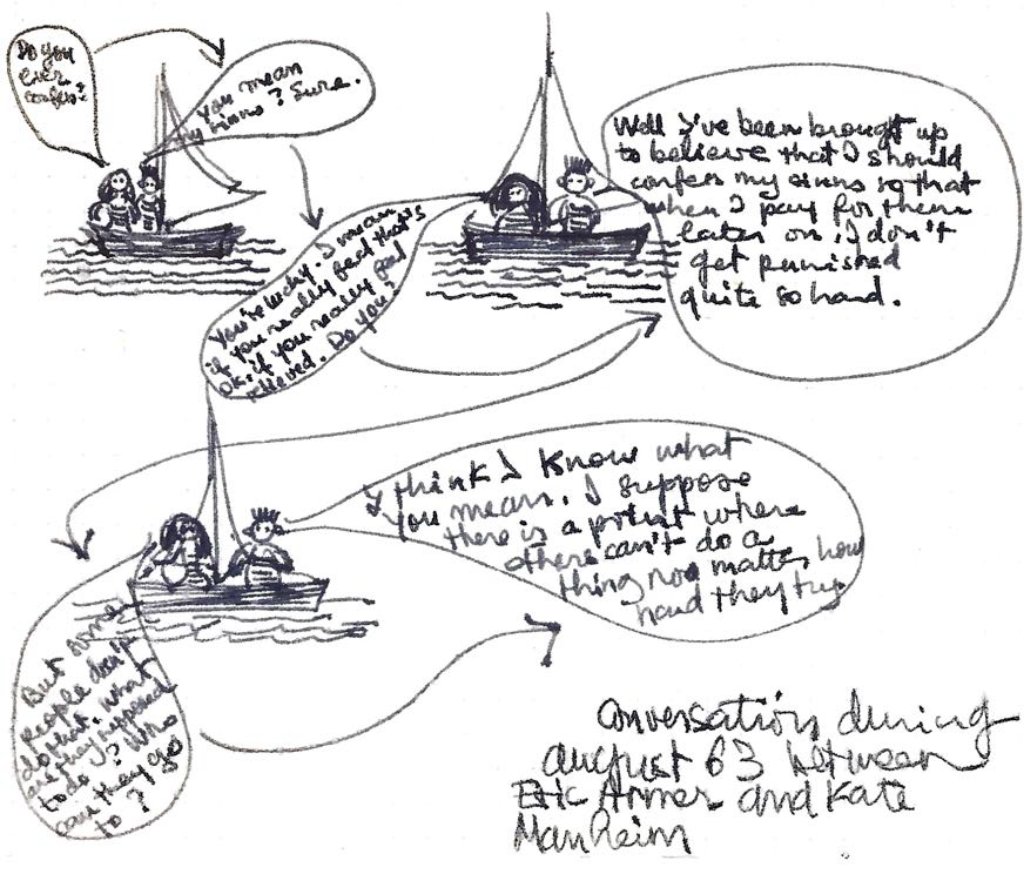 Do you
ever
confess?
You mean
my sinns? Sure.
You're lucky. I mean
if you really feel that's
ok. if you really feel
relieved. Do you?
Well I've been brought up
to believe that I should
confess my sinns so that
when I pay for them
later on, I don't
get punished
quite so hard.
But some
people don't
do that. what
are they supposed
to do? Who
can they go
to?
I think I know what
you mean. I suppose
there is a point where
others can't do a
thing noo matter how
hard they try
Conversation during
august 63 between
Eric Armer and Kate
Manheim